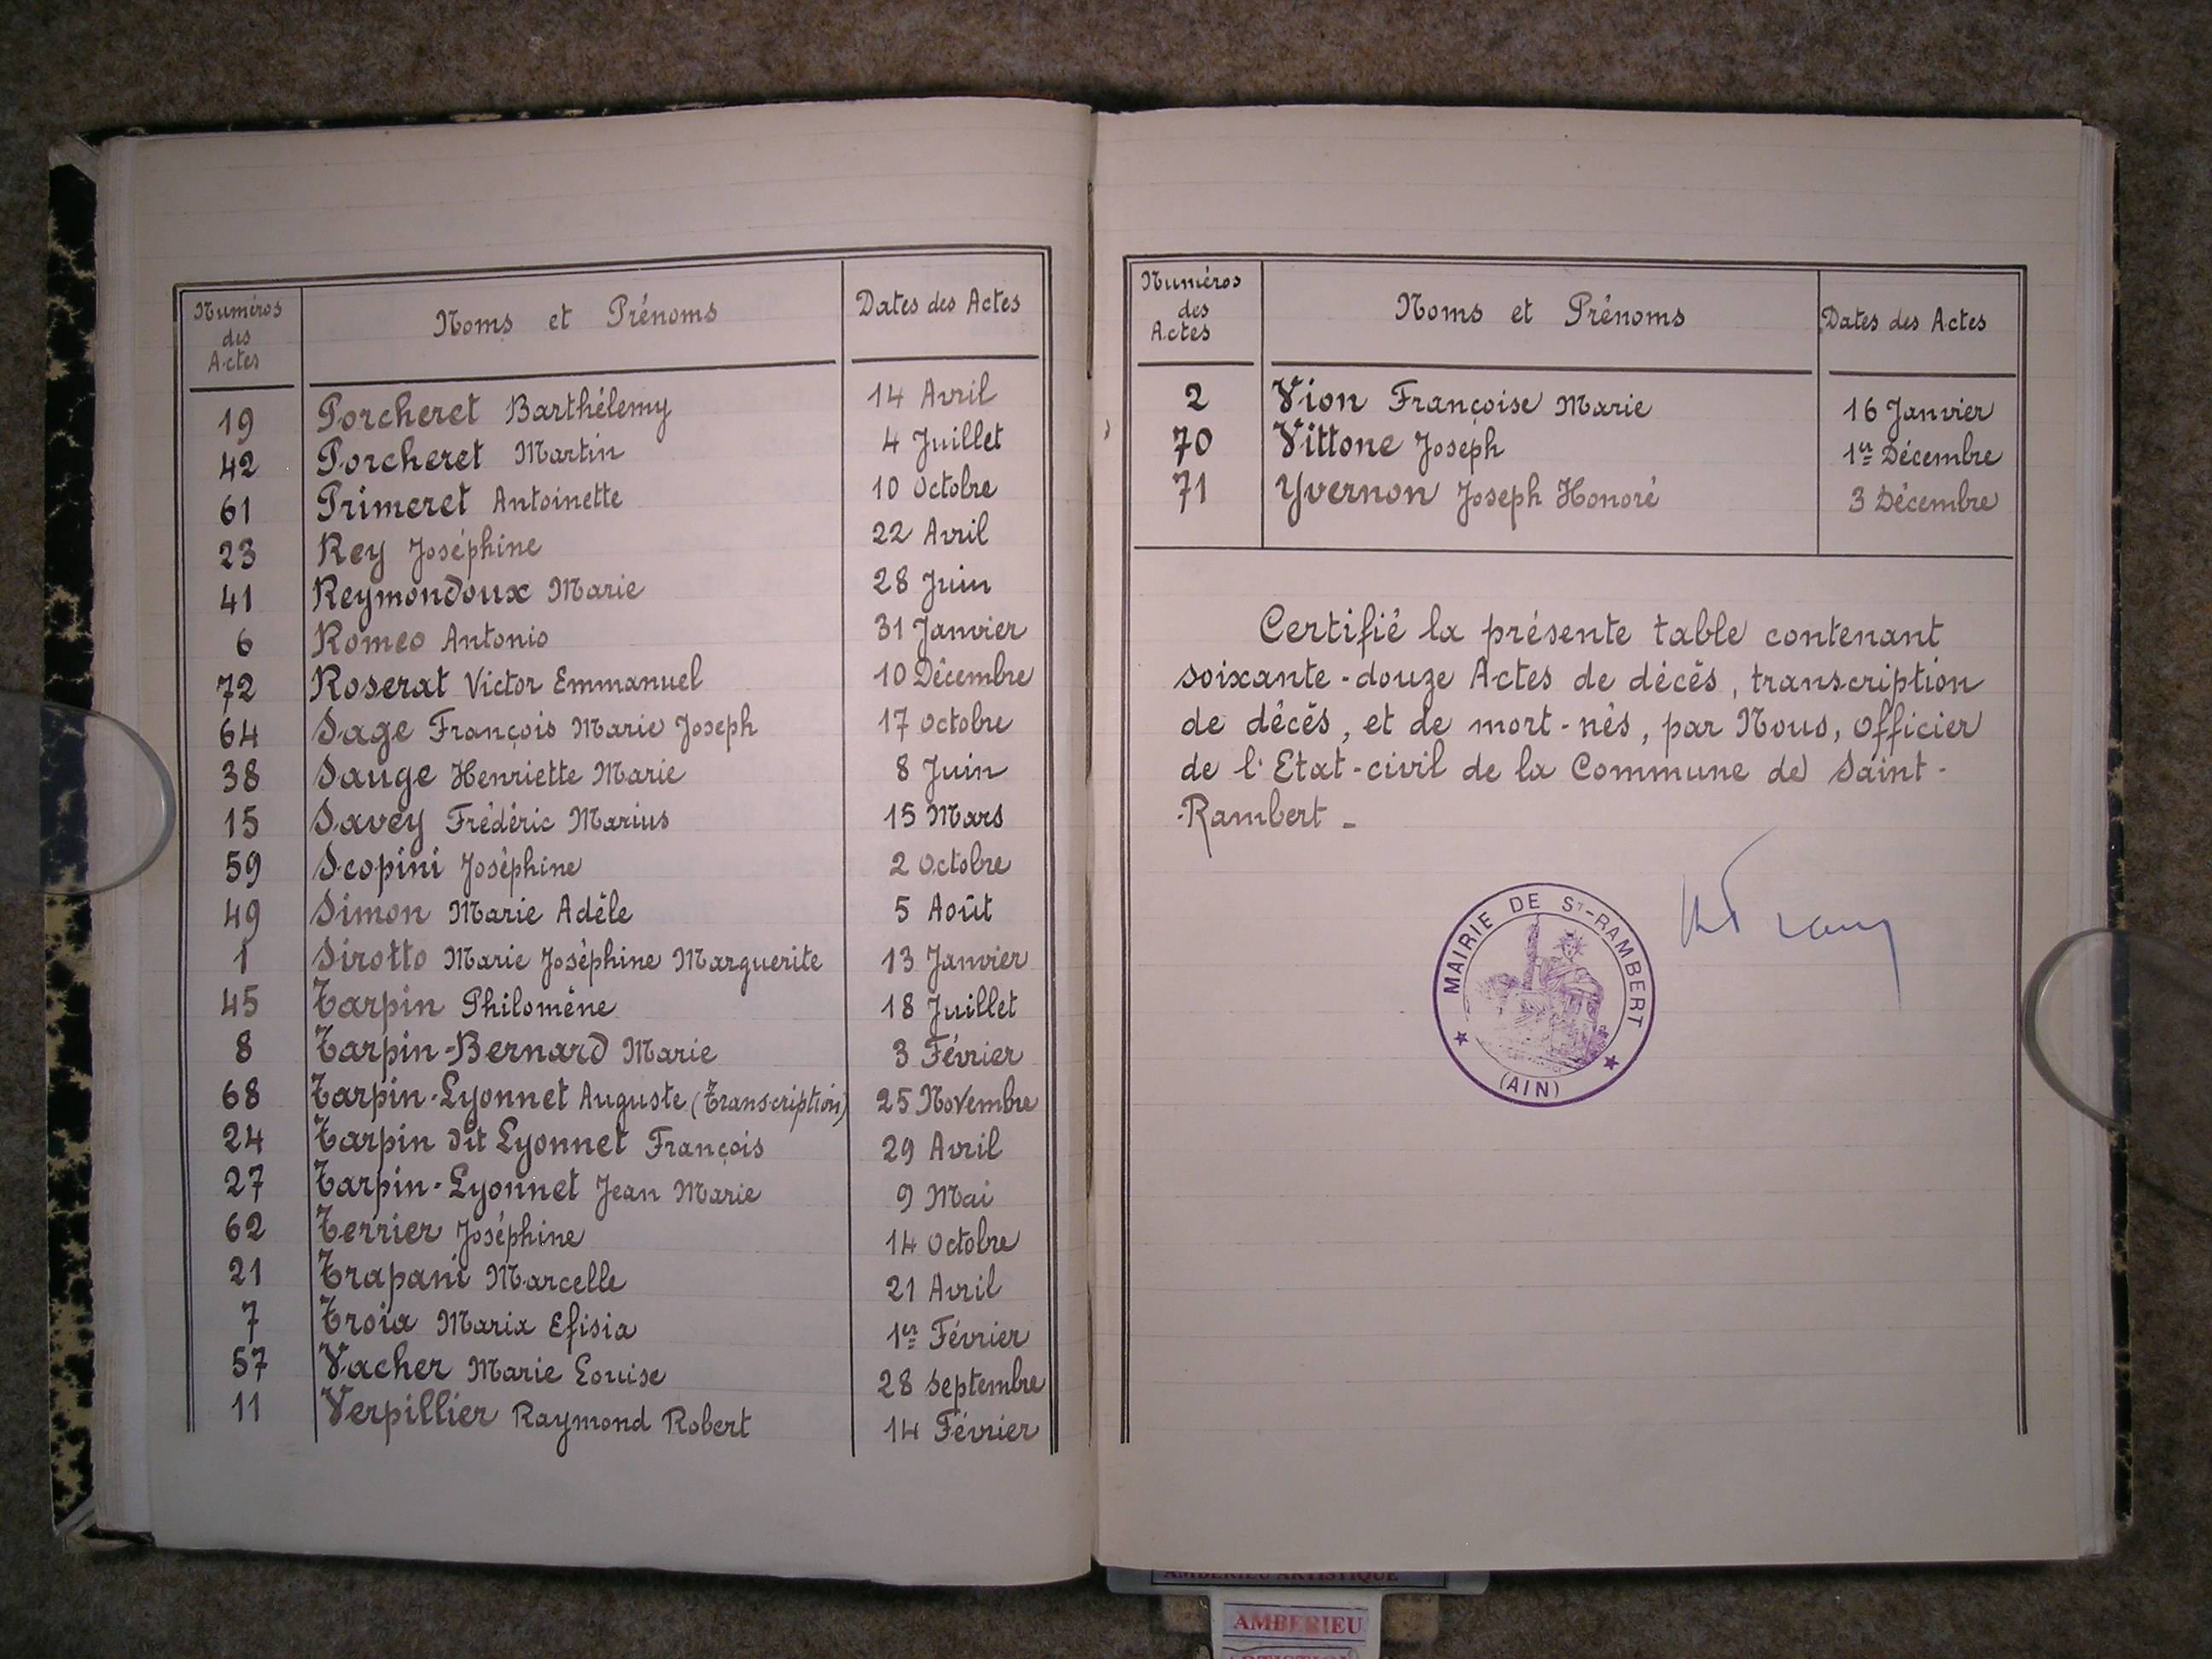 Numéros des Actes Noms et Prénoms Dates des Actes
19 Porcheret Barthélemy 14 Avril
42 Porcheret Martin 4 Juillet
61 Primeret Antoinette 10 Octobre
23 Rey Joséphine 22 Avril
41 Reymondoux Marie 28 Juin
6 Romeo Antonio 31 Janvier
72 Roserat Victor Emmanuel 10 Décembre
64 Sage François Marie Joseph 17 Octobre
38 Sauge Henriette Marie 8 Juin
15 Savey Frédéric Marius 15 Mars
59 Scopini Joséphine 2 Octobre
49 Simon Marie Adèle 5 Août
1 Sirotto Marie Joséphine Marguerite 13 Janvier
45 Tarpin Philomène 18 Juillet
8 Tarpin-Bernard Marie 3 Février
68 Tarpin-Lyonnet Auguste (Transcription) 25 Novembre
24 Tarpin dit Lyonnet François 29 Avril
27 Tarpin-Lyonnet Jean Marie 9 Mai
62 Terrier Joséphine 14 Octobre
21 Trapani Marcelle 21 Avril
7 Troia Maria Efisia 1er Février
57 Vacher Marie Louise 28 Septembre
11 Verpillier Raymond Robert 14 Février
Numéros des Actes Noms et Prénoms Dates des Actes
2 Vion Françoise Marie 16 Janvier
70 Vittone Joseph 1er Décembre
71 Yvernon Joseph Honoré 3 Décembre
Certifié la présente table contenant
soixante-douze Actes de décès, transcription
de décès, et de mort-nés, par Nous, Officier
de l'Etat-civil de la Commune de Saint-
-Rambert _
MAIRIE DE ST-RAMBERT
(AIN)
AMBERIEU ARTISTIQUE
AMBERIEU